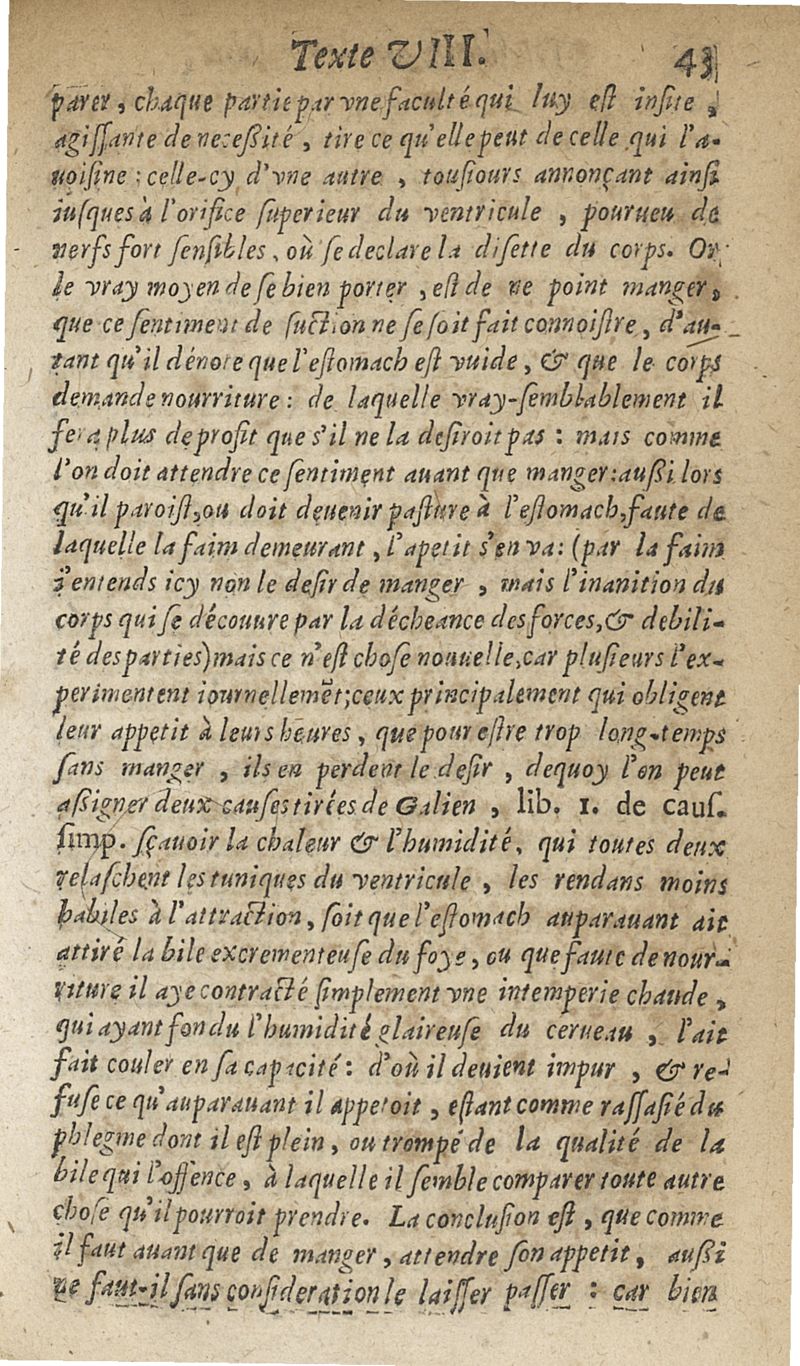 Texte VIII. 43
parer, chaque partie par vne faculté qui luy est insite,
agissante de neceßité, tire ce qu'elle peut de celle qui l'a-
uoisine : celle-cy d'vne autre, tousiours annonçant ainsi
iusques à l'orifice superieur du ventricule, pourueu de
nerfs fort sensibles, où se declare la disette du corps. Or
le vray moyen de se bien porter, est de ne point manger,
que ce sentiment de suction ne se soit fait connoistre, d'au-
tant qu'il dénote que l'estomach est vuide, & que le corps
demande nourriture : de laquelle vray-semblablement il
fera plus de profit que s'il ne la desiroit pas : mais comme
l'on doit attendre ce sentiment auant que manger : außi lors
qu'il paroist, ou doit deuenir pasture à l'estomach, faute de
laquelle la faim demeurant, l'apetit s'en va : (par la faim
i'entends icy non le desir de manger, mais l'inanition du
corps qui se découure par la décheance des forces, & debili-
té des parties) mais ce n'est chose nouuelle, car plusieurs l'ex-
perimentent iournellemēt; ceux principalement qui obligent
leur appetit à leurs heures, que pour estre trop long-temps
sans manger, ils en perdent le desir, dequoy l'on peut
aßigner deux causes tirées de Galien, lib. 1. de caus.
simp. sçauoir la chaleur & l'humidité, qui toutes deux
relaschent les tuniques du ventricule, les rendans moins
habiles à l'attraction, soit que l'estomach auparauant ait
attiré la bile excrementeuse du foye, ou que faute de nour-
riture il aye contracté simplement vne intemperie chaude,
qui ayant fondu l'humidité glaireuse du cerueau, l'ait
fait couler en sa capacité : d'où il deuient impur, & re-
fuse ce qu'auparauant il appetoit, estant comme rassasié du
phlegme dont il est plein, ou trompé de la qualité de la
bile qui l'offence, à laquelle il semble comparer toute autre
chose qu'il pourroit prendre. La conclusion est, que comme
il faut auant que de manger, attendre son appetit, außi
ne faut-il sans consideration le laisser passer : car bien